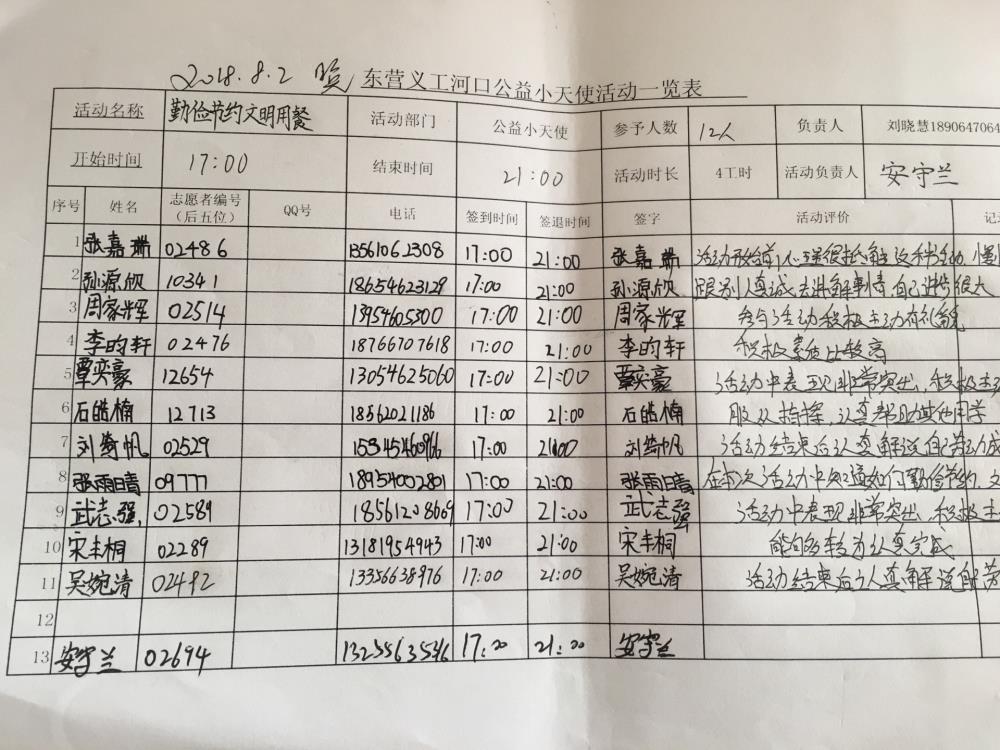 2018.8.2 东营义工河口公益小天使活动一览表
活动名称 勤俭节约文明用餐 活动部门 公益小天使 参予人数 12人 负责人 刘晓慧1890647064
开始时间 17:00 结束时间 21:00 活动时长 4工时 活动负责人 安守兰
序号 姓名 志愿者编号（后五位） QQ号 电话 签到时间 签退时间 签字 活动评价
1 张嘉瑞 02486 13561062308 17:00 21:00 张嘉瑞
2 孙源欣 10341 18654623129 17:00 21:00 孙源欣 跟别人真诚去讲解事情,自己进步很大
3 周家辉 02514 18954605300 17:00 21:00 周家辉 参与活动积极主动有礼貌
4 李昀轩 02476 18766707618 17:00 21:00 李昀轩 积极素质比较高
5 覃奕豪 12654 13054625060 17:00 21:00 覃奕豪 活动中表现非常突出,积极主动
6 石皓楠 12713 18562021186 17:00 21:00 石皓楠 服从指挥,认真帮助其他同学
7 刘绮帆 02529 17:00 21:00 刘绮帆 活动结束后认真解说自己劳动成
8 张雨晴 09777 18954002801 17:00 21:00 张雨晴 在本次活动中知道如何勤俭节约,文
9 武志强 02589 18561208669 17:00 21:00 武志强 活动中表现非常突出,积极主
10 宋丰桐 02289 13181954943 17:00 21:00 宋丰桐 能够较为认真完成
11 吴婉清 02492 13356638976 17:00 21:00 吴婉清 活动结束后认真解说自己劳
12
13 安守兰 02694 13255635346 17:00 21:00 安守兰